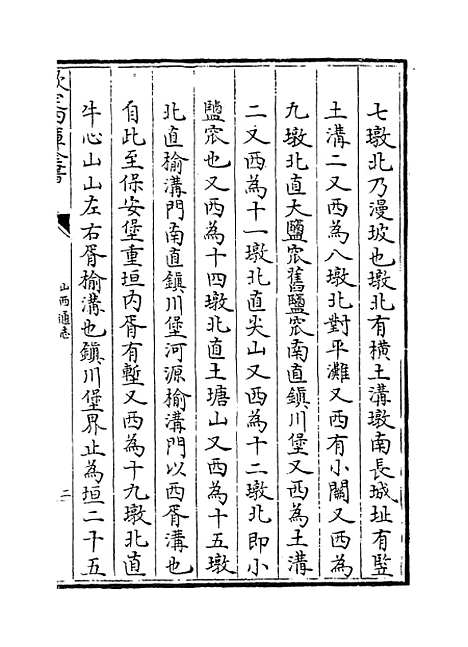 七墩北乃漫坡也墩北有橫土溝墩南長城址有豎
土溝二又西為八墩北對平灘又西有小關又西為
九墩北直大鹽窊舊鹽窊南直鎮川堡又西為土溝
二又西為十一墩北直尖山又西為十二墩北即小
鹽窊也又西為十四墩北直土塘山又西為十五墩
北直榆溝門南直鎮川堡河源榆溝門以西胥溝也
自此至保安堡重垣内胥有塹又西為十九墩北直
牛心山山左右胥榆溝也鎮川堡界止為垣二十五
欽定四庫全書
山西通志
二